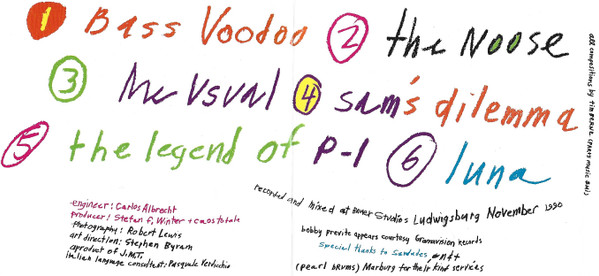 1 Bass Voodoo 2 the Noose
3 the Usual 4 sam's dilemma
5 the legend of P-1 6 luna
all compositions by Tim Berne (party music BMI)
engineer: Carlos Albrecht
producer: Stefan F. Winter + caos totale
Photography: Robert Lewis
art direction: Stephen Byram
a product of J.M.T.
italian language consultant: Pasquale Verdicchio
recorded and mixed at Bauer Studios Ludwigsburg November 1990
bobby previte appears courtesy Gramavision Records
Special thanks to Sandades,
(pearl drums) Marburg for their kind services